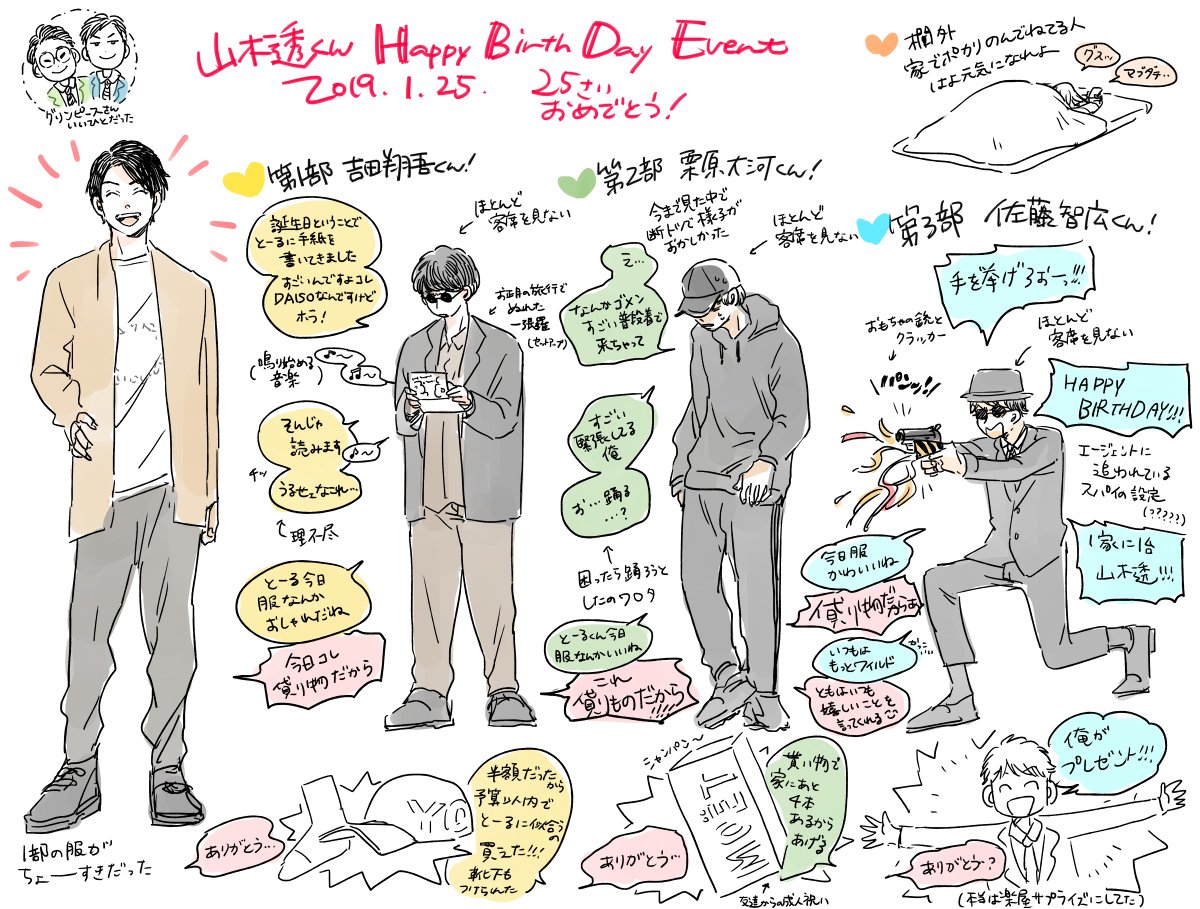 山本透くん Happy Birth Day Event
2019.1.25. 25さい
おめでとう!
グリンピースさん
いいひとだった
欄外
ポカリのんでねてる人
はよ元気になれよ
グスッ
マブダチ…
第1部 吉田翔吾くん!
誕生日ということで
とーるに手紙を
書いてきました
すごいんですよコレ
DAISOなんですけど
ホラ!
ほとんど
客席を見ない
お正月の旅行で
ぬれた
一張羅
(セットアップ)
(鳴り始める
音楽)
♪〜
♫〜
そんじゃ
読みます
♪〜
チッ
うるせェなこれ…
↑
理不尽
とーる今日
服なんか
おしゃれだね
今日コレ
貸り物だから
第2部 栗原大河くん!
今まで見た中で
断トツで様子が
おかしかった
ほとんど
客席を見ない
え…
なんかゴメン
すごい普段着で
来ちゃって
すごい
緊張してる
俺
お…踊る
…?
↑
困ったら踊ろうと
したのワロタ
とーるくん今日
服なんかいいね
これ
貸りものだから!!!
第3部 佐藤智広くん!
手を挙げろぉーっ!!!
おもちゃの銃と
クラッカー
ほとんど
客席を見ない
パンッ!!
HAPPY
BIRTHDAY!!!
エージェントに
追われている
スパイの設定
(?????)
1家に1台
山本透!!!
今日服
かわいいね
貸り物だからぁ
いつもは
もっとワイルド
ともはいつも
嬉しいことを
言ってくれる
1部の服が
ちょーーすきだった
ありがとう…
半額だったから
予算以内で
とーるに似合うの
買えた!!!
靴下も
つけられんた
シャンパン〜
ありがとう…
貰い物で
家にあと
4本
あるから
あげる
友達からの成人祝い
俺が
プレゼント!!!
ありがとう?
(本当は楽屋サプライズにしてた)